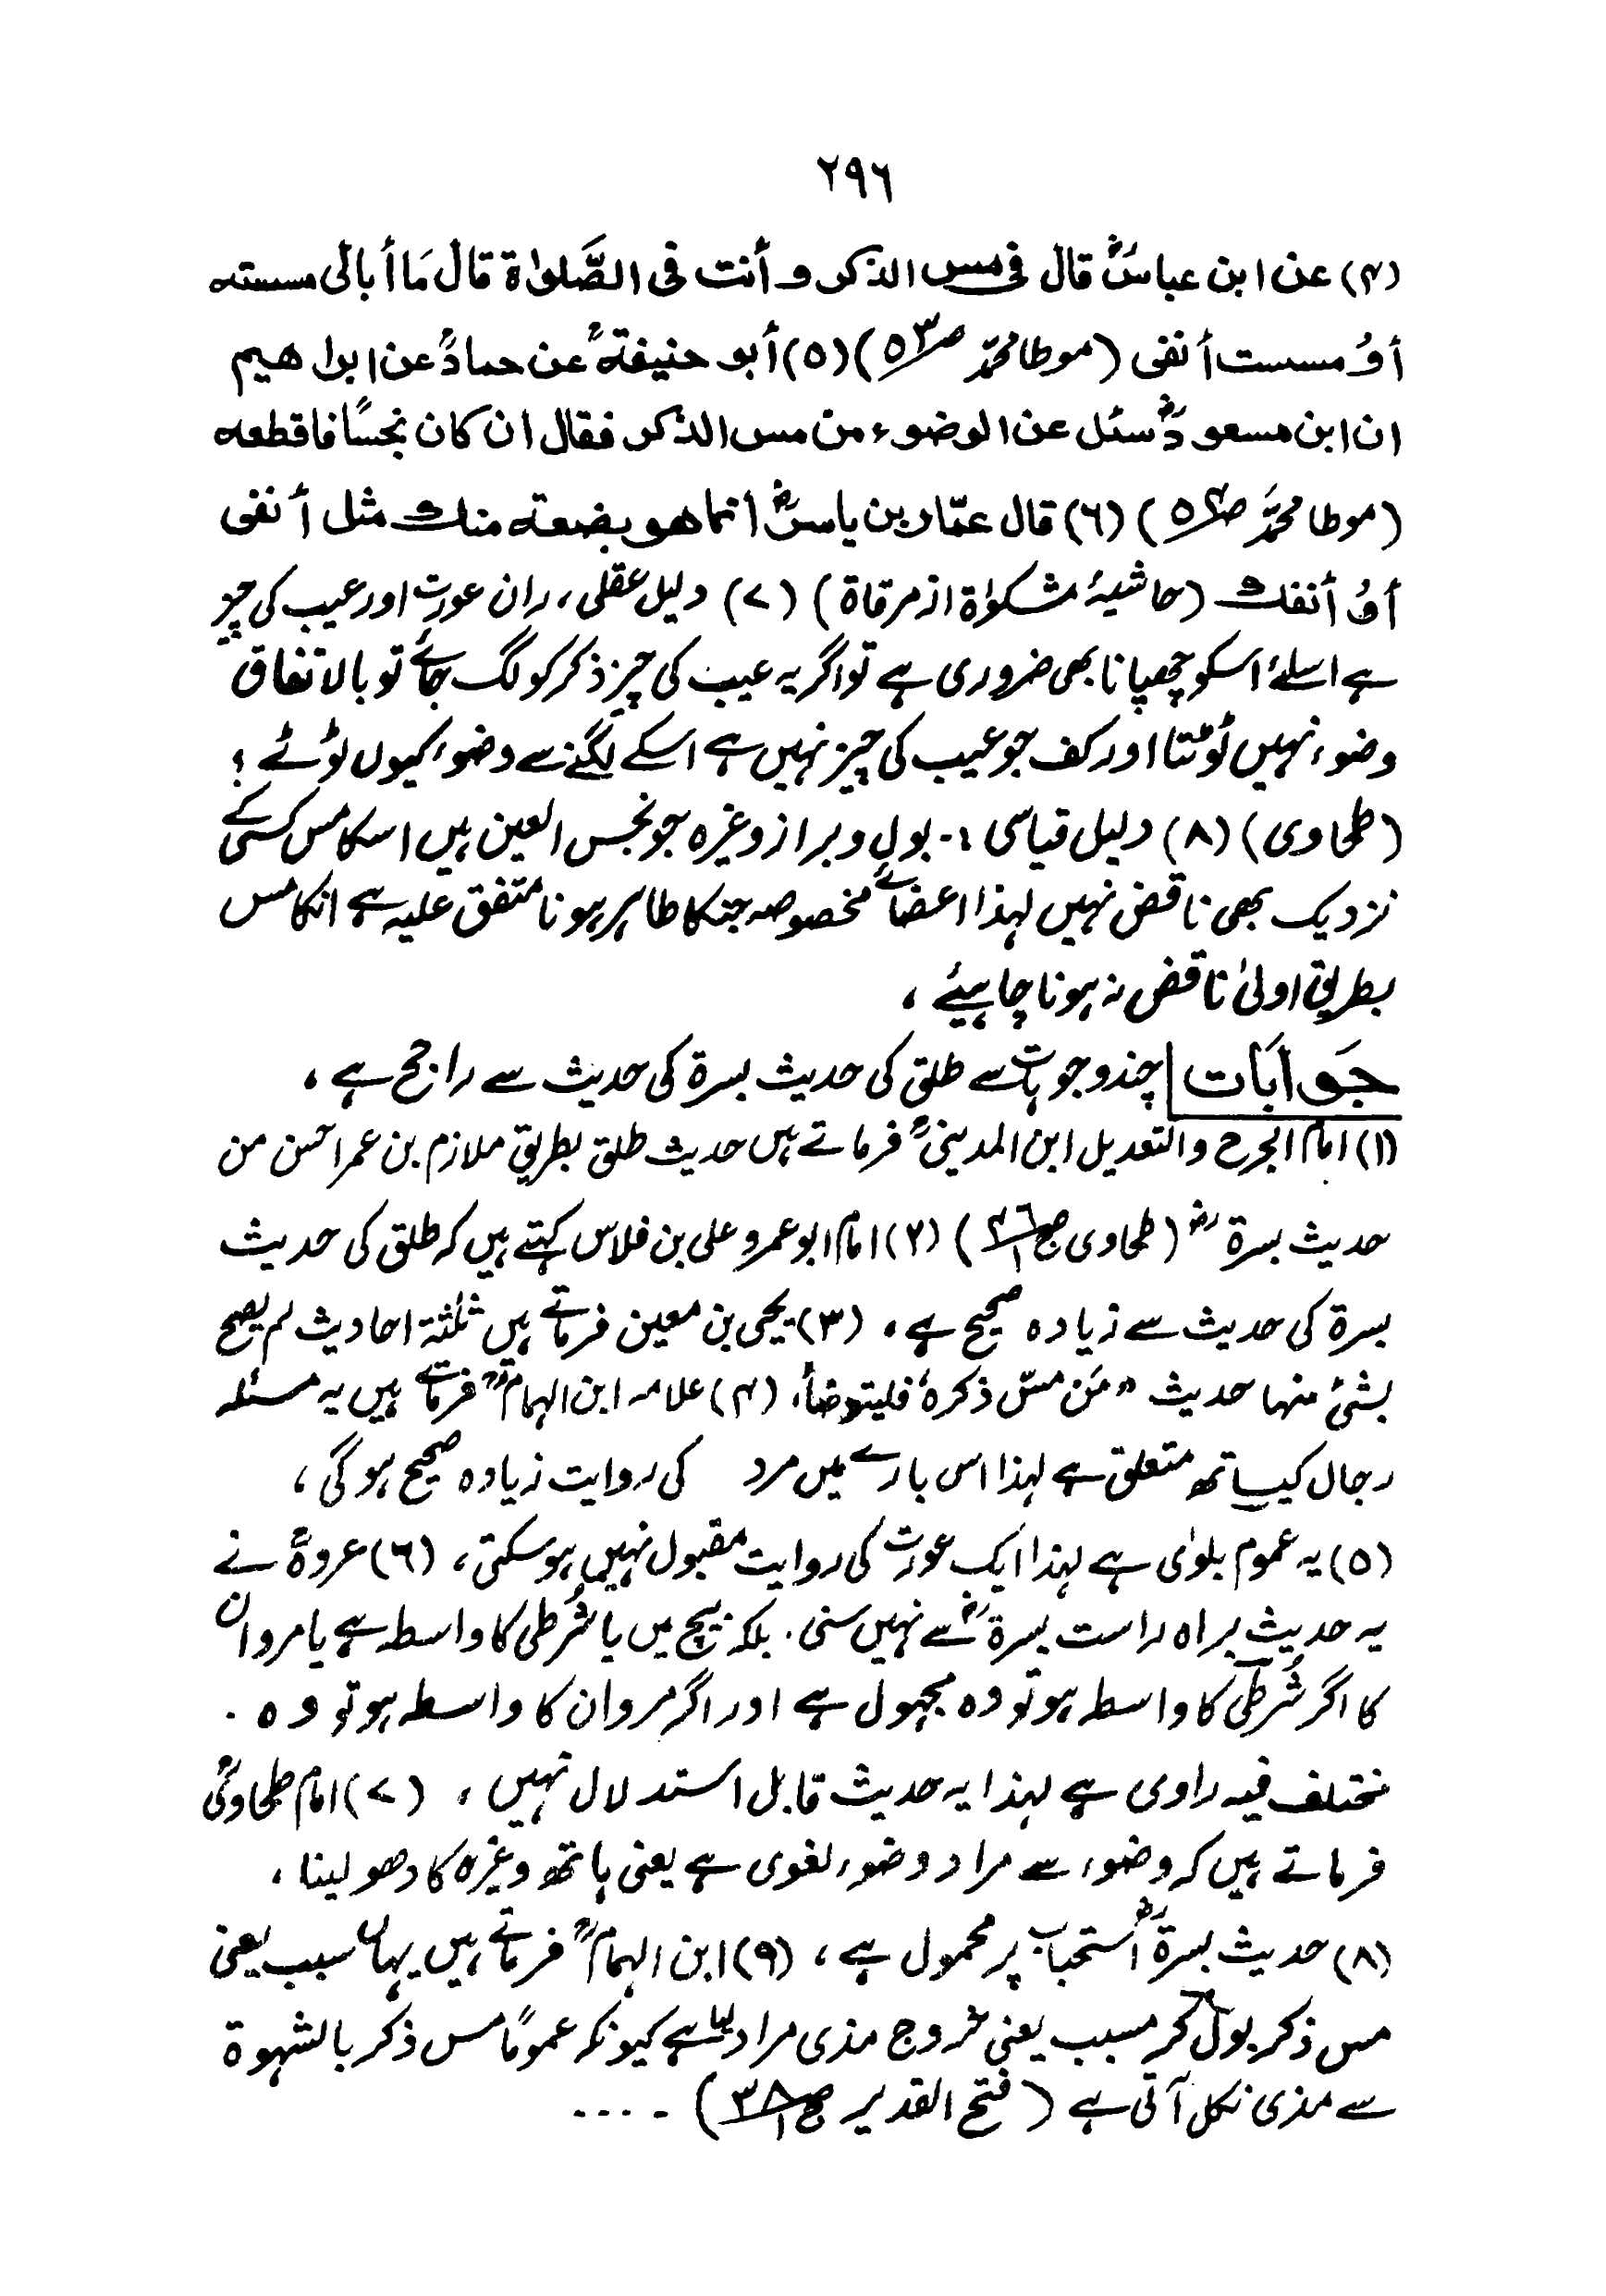 ۲۹۶
(۴) عن ابن عباسؓ قال فی مس الذکر و أنت فی الصَّلوٰة قال مَا أبالی مسسته
أوْ مسست أنفی (موطا محمدؒ ص۵۳) (۵) أبو حنیفةؒ عن حمادؒ عن ابراھیم
ان ابن مسعودؓ سئل عن الوضوء من مس الذکر فقال ان کان نجسًا فاقطعه
(موطا محمدؒ ص۵۴) (۶) قال عمّار بن یاسرؓ انما ھو بضعة منك مثل أنفی
أوْ أنفك (حاشیۂ مشکوٰة از مرقاة) (۷) دلیل عقلی، ران عورت اور عیب کی چیز
ہے اسلئے اسکو چھپانا بھی ضروری ہے تو اگر یہ عیب کی چیز ذکر کو لگ جائے تو بالاتفاق
وضوء نہیں ٹوٹتا اور کف جو عیب کی چیز نہیں ہے اسکے لگنے سے وضوء کیوں ٹوٹے ؟
(طحاوی) (۸) دلیل قیاسی :- بول و براز وغیرہ جو نجس العین ہیں اسکا مس کسی کے
نزدیک بھی ناقض نہیں لہذا اعضائے مخصوصہ جنکا طاہر ہونا متفق علیہ ہے انکا مس
بطریق اولیٰ ناقض نہ ہونا چاہیئے ،
جَوابَات چند وجوہات سے طلق کی حدیث بسرة کی حدیث سے راجح ہے ،
(۱) امام الجرح والتعدیل ابن المدینیؒ فرماتے ہیں حدیث طلق بطریق ملازم بن عمر احسن من
حدیث بسرةؓ (طحاوی ج۱ ص۴۶) (۲) امام ابو عمرو علی بن فلاس کہتے ہیں کہ طلق کی حدیث
بسرة کی حدیث سے زیادہ صحیح ہے ، (۳) یحیی بن معین فرماتے ہیں ثلٰثة احادیث لم یصح
بشئ منھا حدیث "مَن مسّ ذکرہٗ فلیتوضأ، (۴) علامہ ابن الہمامؒ فرماتے ہیں یہ مسئلہ
رجال کیساتھ متعلق ہے لہذا اس بارے میں مرد کی روایت زیادہ صحیح ہوگی ،
(۵) یہ عموم بلوٰی ہے لہذا ایک عورت کی روایت مقبول نہیں ہوسکتی ، (۶) عروةؒ نے
یہ حدیث براہ راست بسرةؓ سے نہیں سنی . بلکہ بیچ میں یا شُرطی کا واسطہ ہے یا مروان
کا اگر شُرطی کا واسطہ ہو تو وہ مجہول ہے اور اگر مروان کا واسطہ ہو تو وہ .
مختلف فیہ راوی ہے لہذا یہ حدیث قابل استدلال نہیں ، (۷) امام طحاویؒ
فرماتے ہیں کہ وضوء سے مراد وضوء لغوی ہے یعنی ہاتھ وغیرہ کا دھو لینا ،
(۸) حدیث بسرةؓ استحباب پر محمول ہے ، (۹) ابن الہمامؒ فرماتے ہیں یہاں سبب یعنی
مس ذکر بول کر مسبب یعنی خروج مذی مراد لیا ہے کیونکہ عمومًا مس ذکر بالشہوة
سے مذی نکل آتی ہے (فتح القدیر ج۱ ص۳۸) - ....